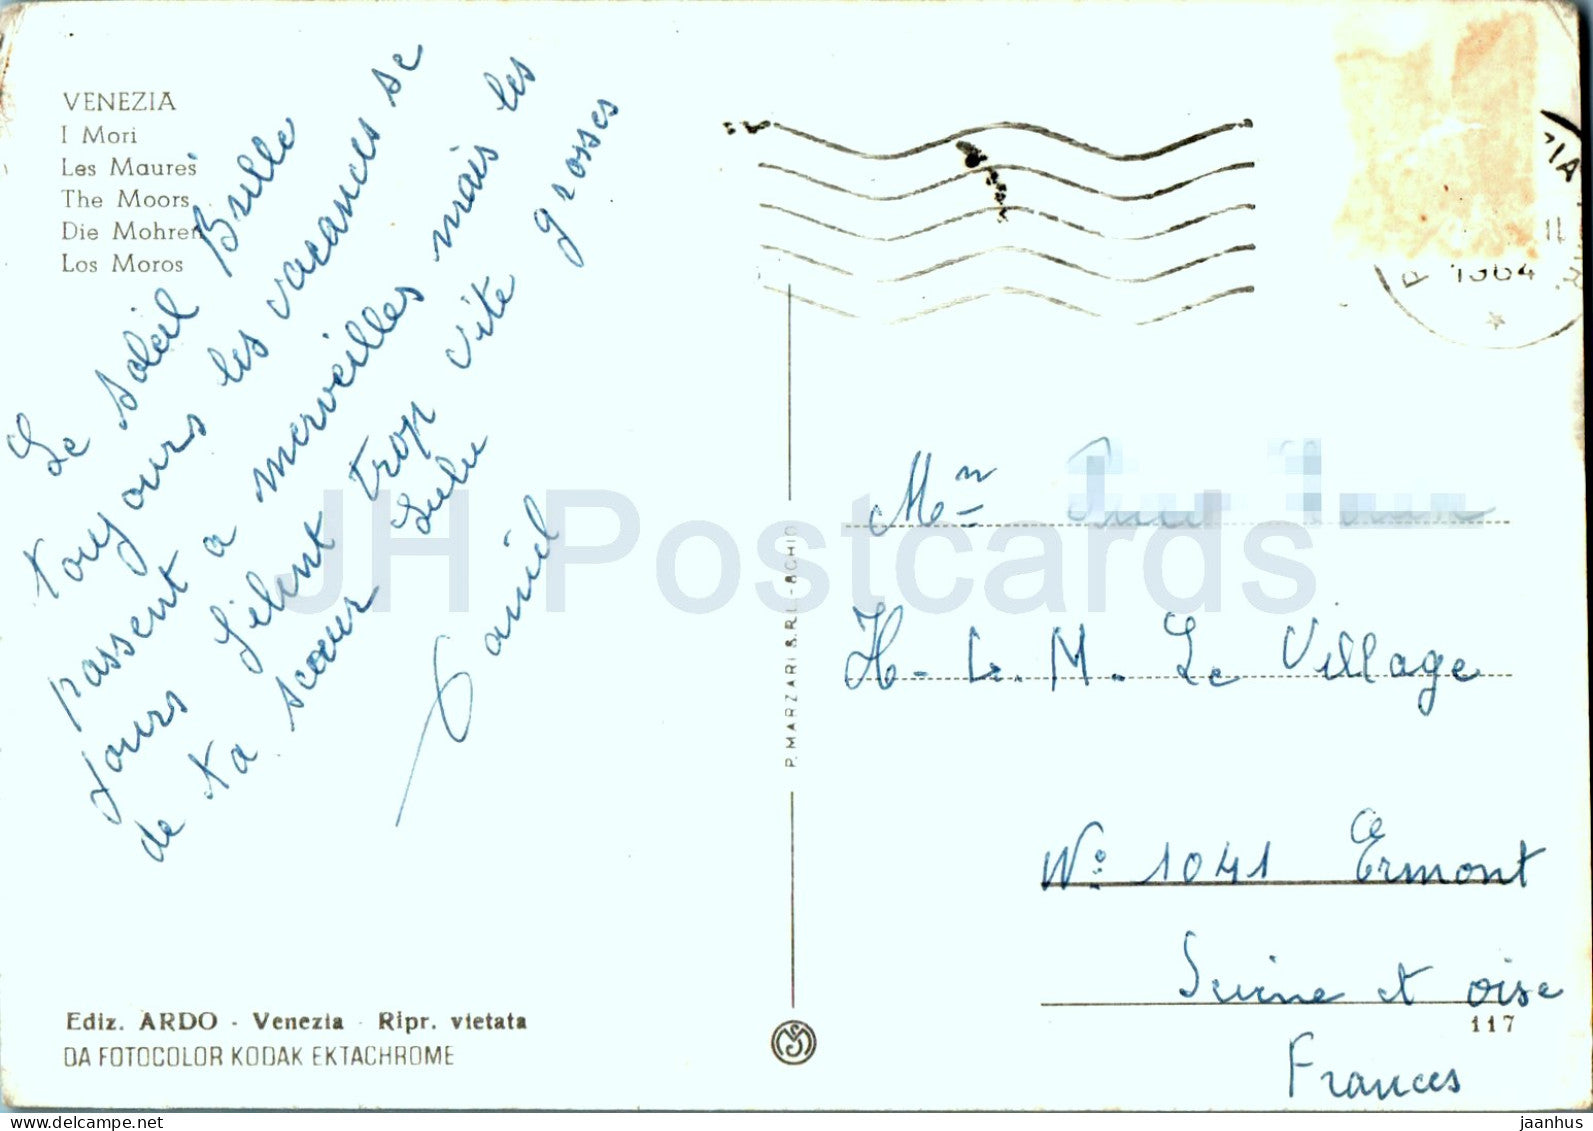 VENEZIA
I Mori
Les Maures
The Moors
Die Mohren
Los Moros
Le soleil Brille
toujours les vacances se
passent a merveilles mais les
jours filent trop vite grosses
de ta sœur Lulu
Daniel
Ediz. ARDO - Venezia - Ripr. vietata
DA FOTOCOLOR KODAK EKTACHROME
P. MARZARI S.R.L. - SCHIO
1964
Mm
H.L.M. Le Village
No 1041 Ermont
Seine et oise
Frances
117
JH Postcards
jaanhus